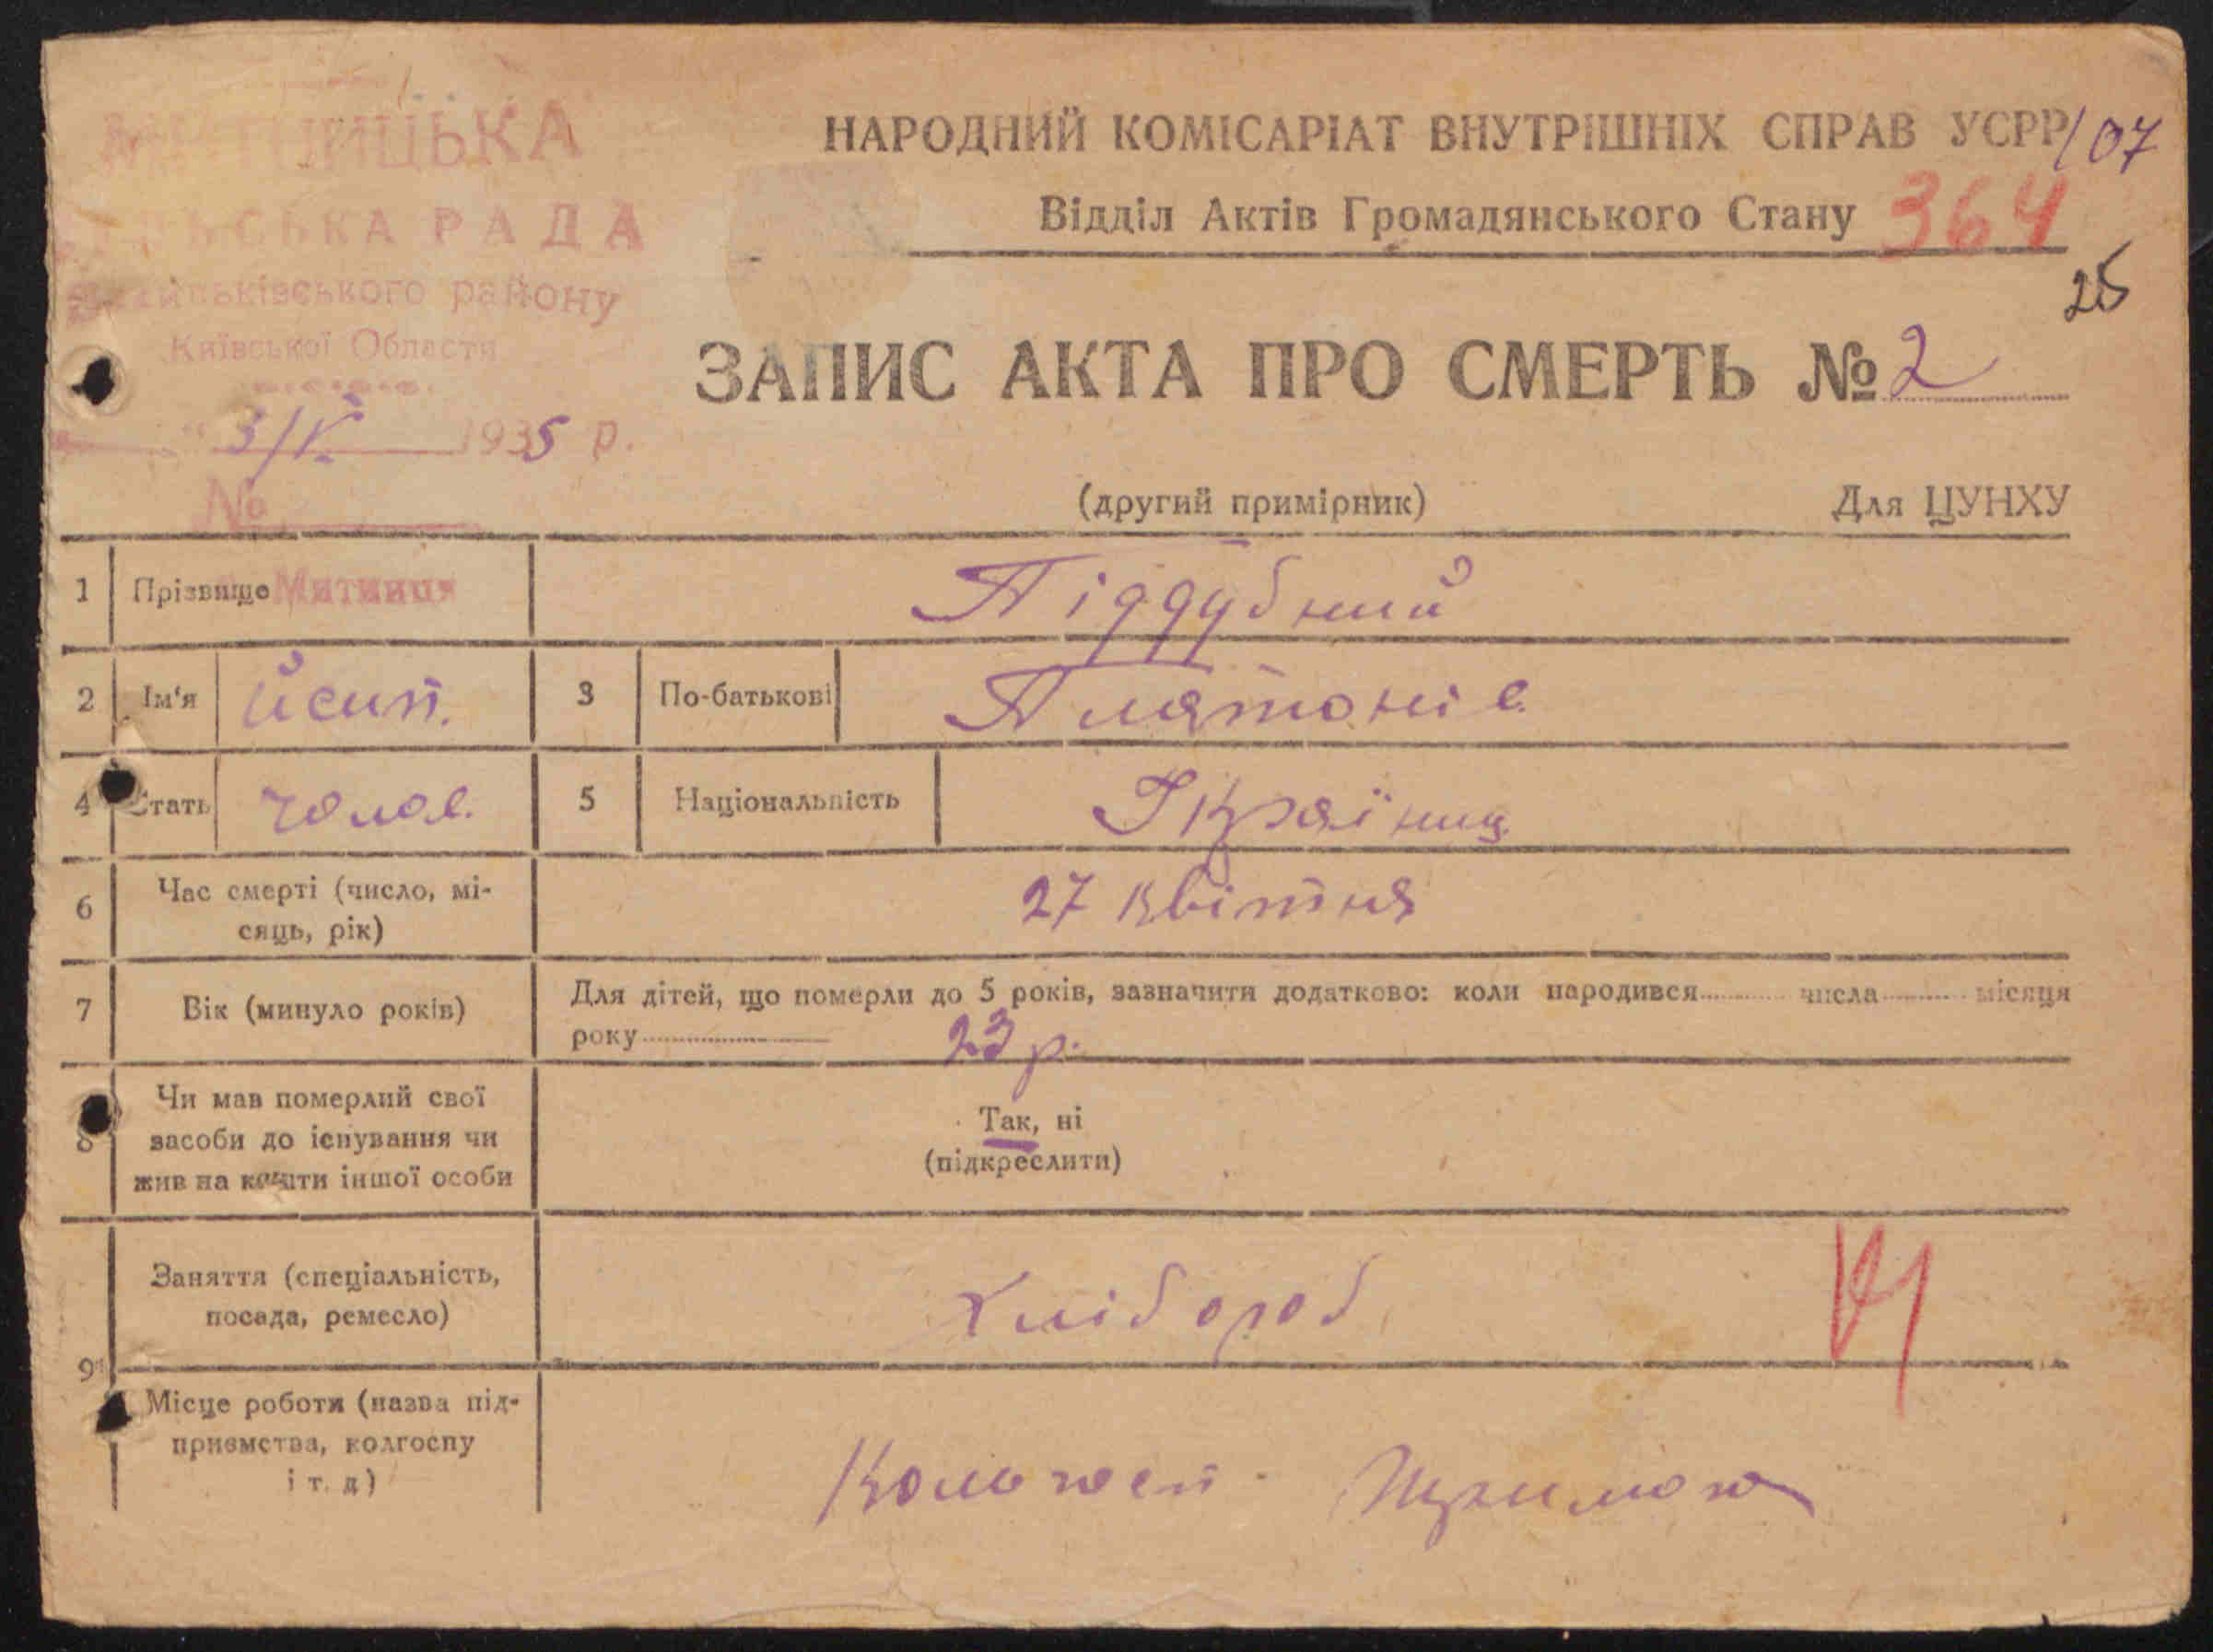 МИТНИЦЬКА
СІЛЬСЬКА РАДА
Васильківського району
Київської Области
"3/V 1935 р.
№
НАРОДНИЙ КОМІСАРІАТ ВНУТРІШНІХ СПРАВ УСРР
107
Відділ Актів Громадянського Стану
364
25
ЗАПИС АКТА ПРО СМЕРТЬ № 2
(другий примірник) Для ЦУНХУ
1 Прізвище Митниця Піддубний
2 Ім'я Йсип. 3 По-батькові Платонів.
4 Стать чолов. 5 Національність Українц.
6 Час смерті (число, мі-
сяць, рік) 27 квітня
7 Вік (минуло років) Для дітей, що померли до 5 років, зазначити додатково: коли народився числа місяця
року 23 р.
8 Чи мав померлий свої
засоби до існування чи
жив на кошти іншої особи
Так, ні
(підкреслити)
9 Заняття (спеціальність,
посада, ремесло) Хлібороб
Місце роботи (назва під-
приємства, колгоспу
і т. д)